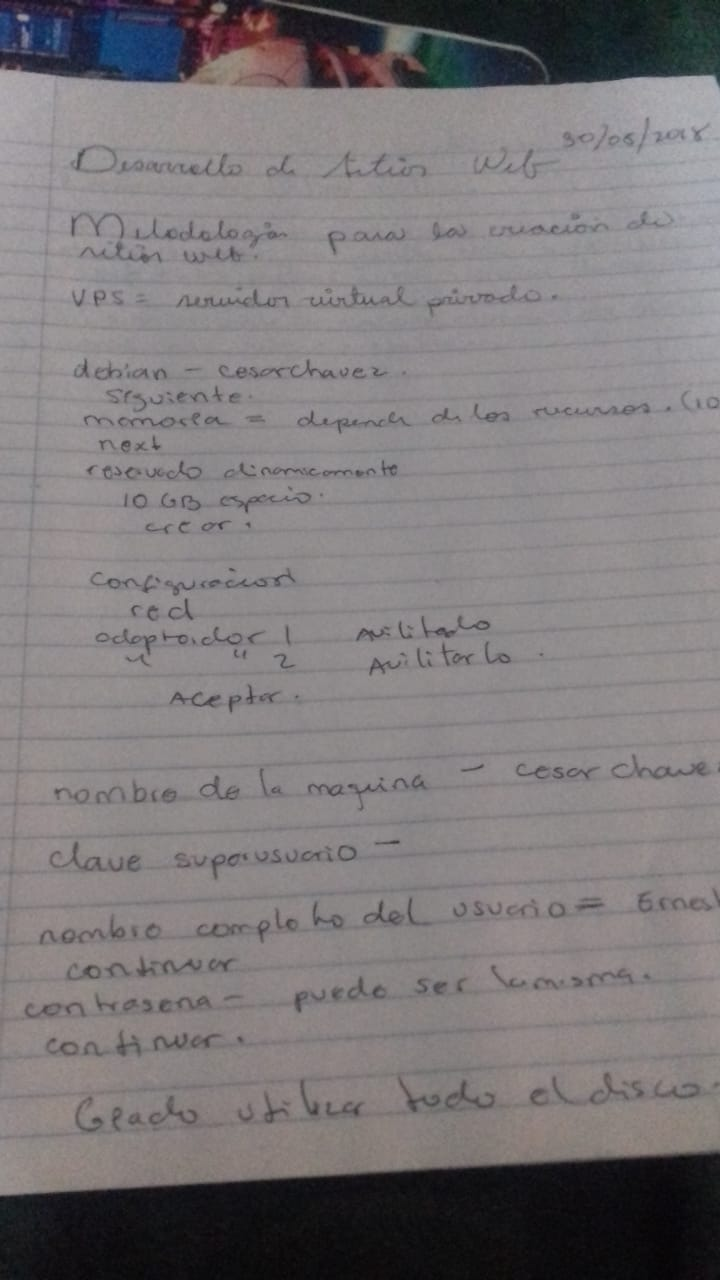 30/05/2018
Desarrollo de sitios Web
Metodologia para la creación de
sitios web.
VPS = servidor virtual privado.
debian - cesarchavez.
siguiente.
memoria = depende de los recursos. (10
next
reservado dinamicamente
10 GB espacio.
crear.
configuracion
red
adaptador 1 Avilitado
" " 2 Avilitarlo.
Aceptar.
nombre de la maquina - cesar chave
clave superusuario -
nombre completo del usuario = Ernest
continuar
contrasena - puede ser la misma.
continuar.
utilizar todo el disco.